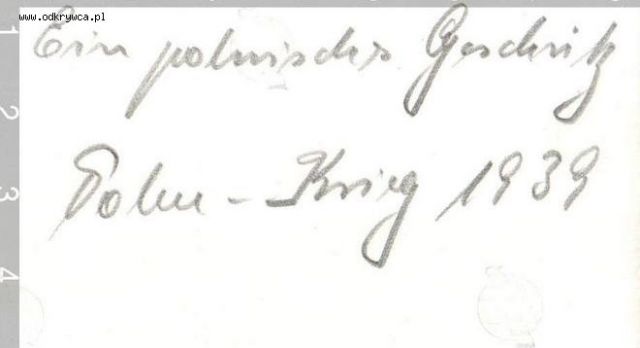 www.odkrywca.pl
Ein polnisches Geschütz
Polen - Krieg 1939
1
2
3
4